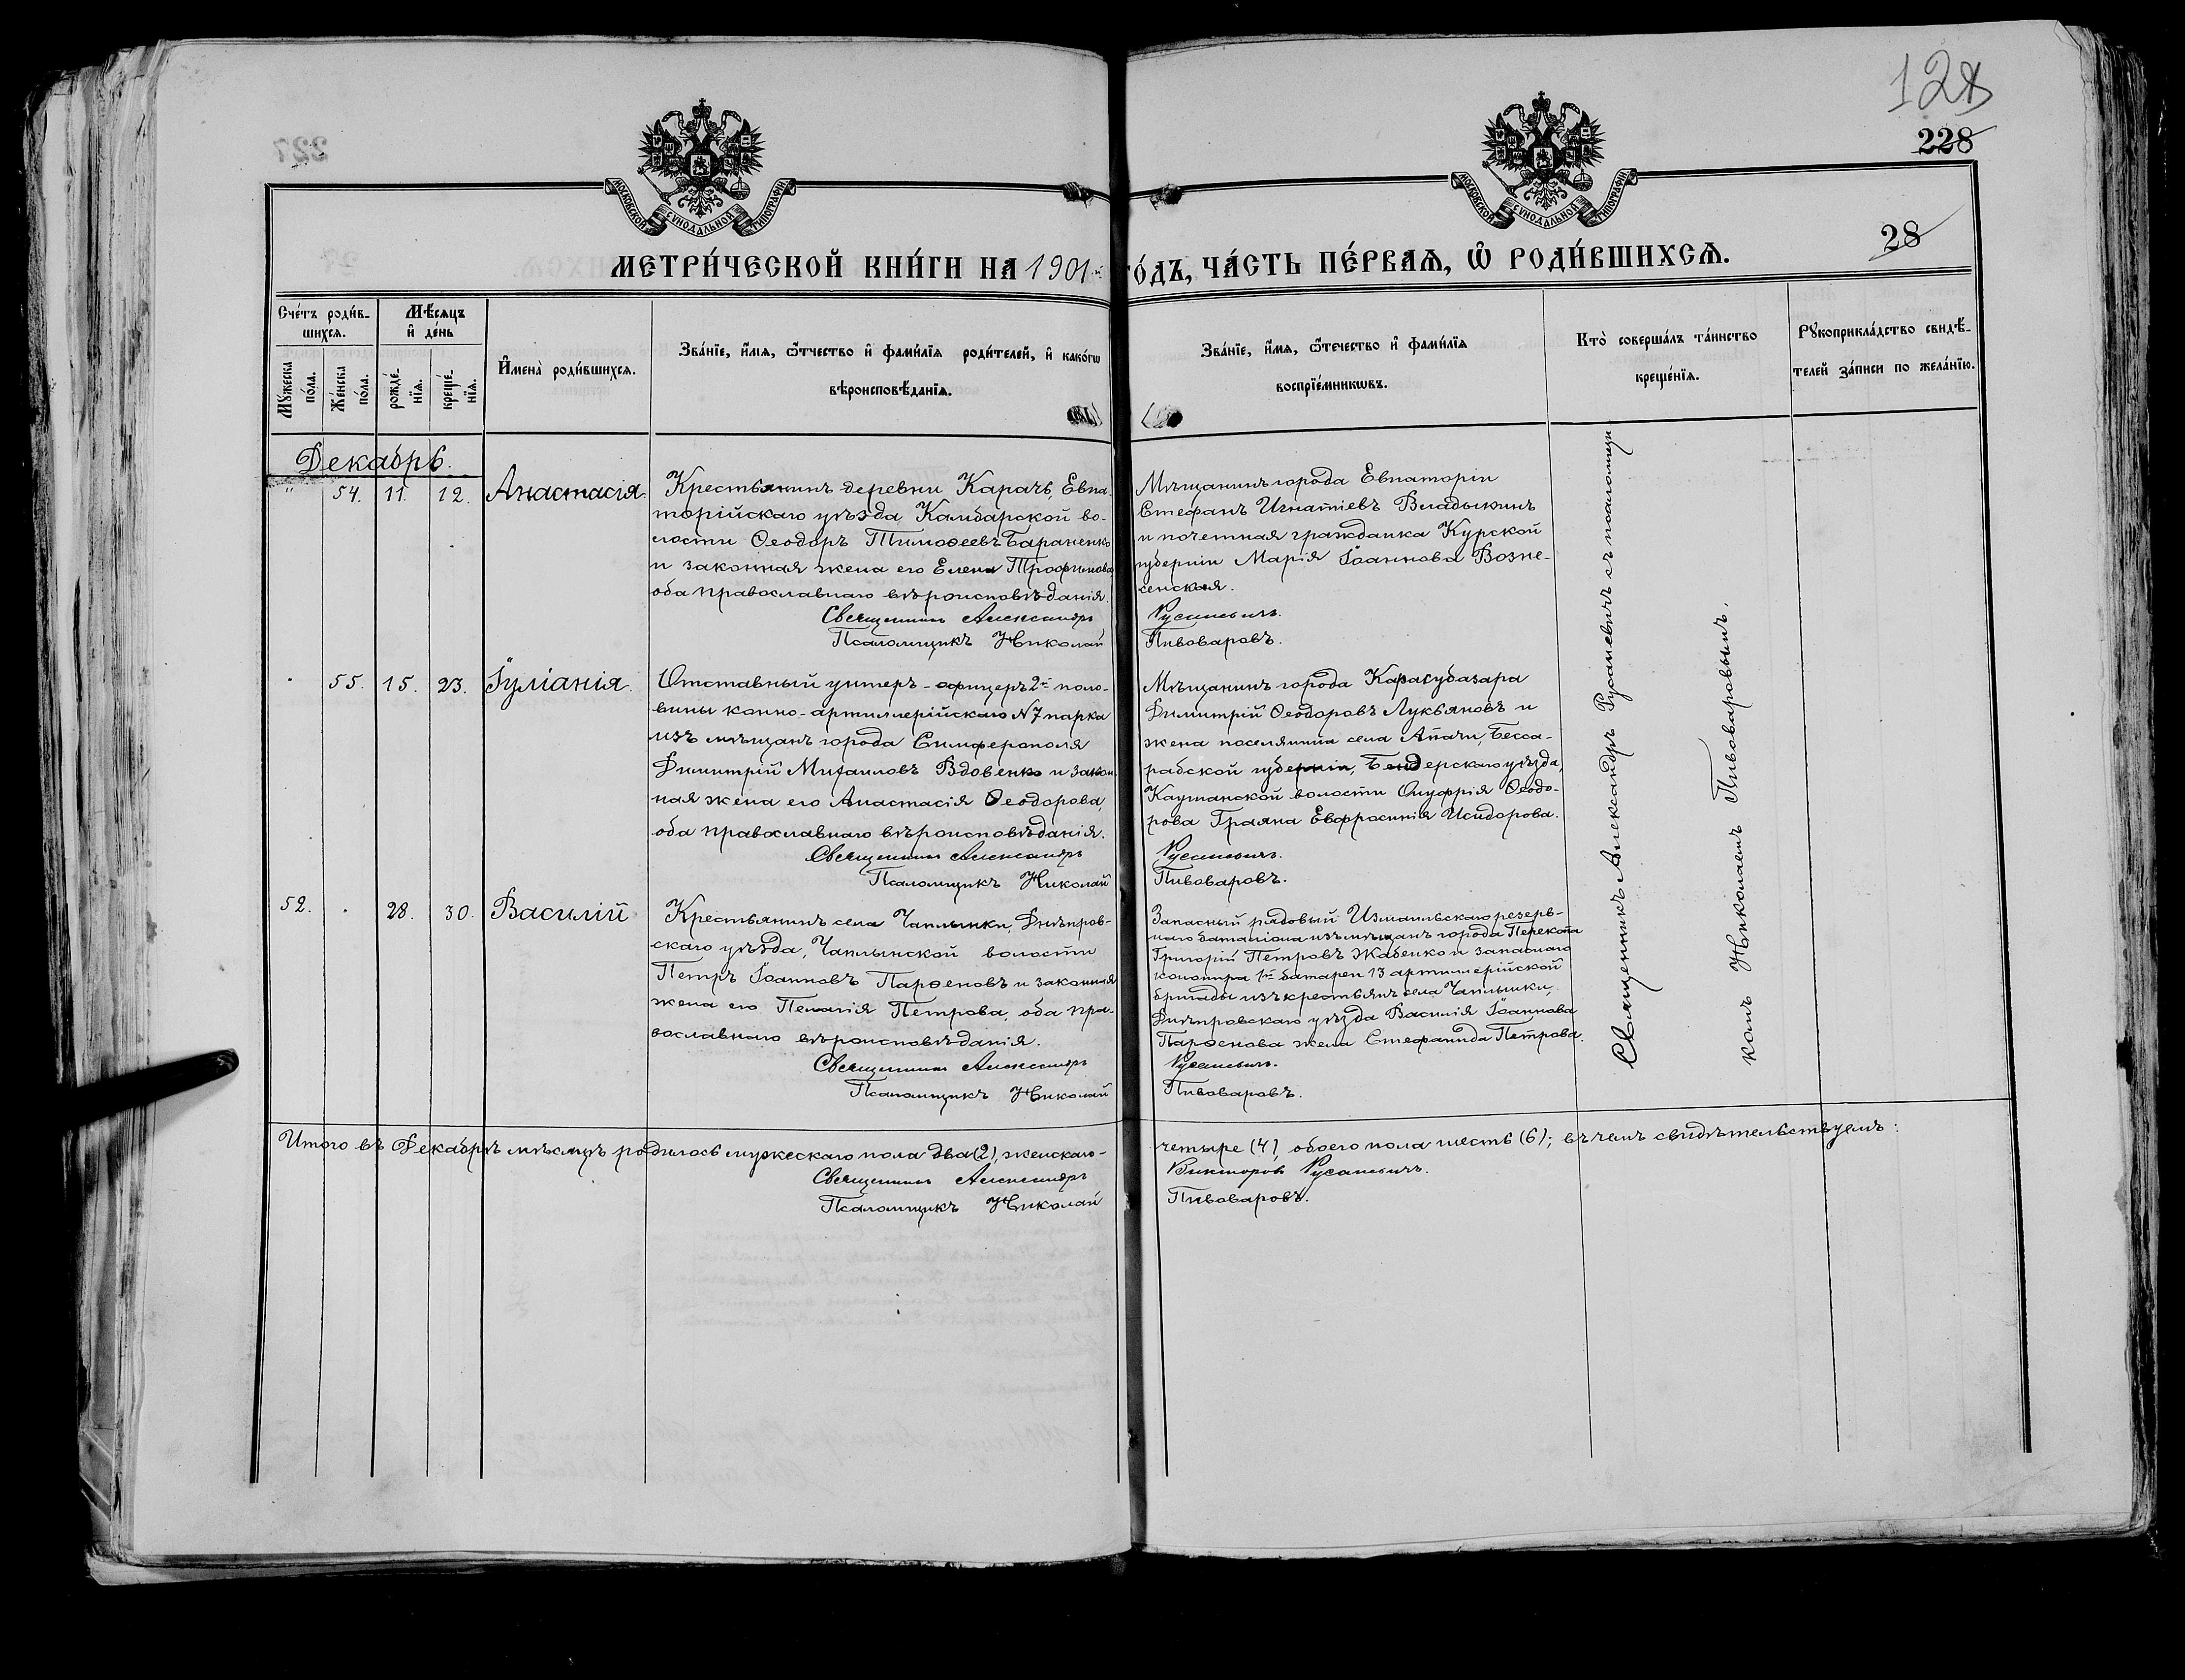 128
228
28
МОСКОВСКОЙ СѴНОДАЛЬНОЙ ТИПОГРАФІИ
МОСКОВСКОЙ СѴНОДАЛЬНОЙ ТИПОГРАФІИ
МЕТРИ́ЧЕСКОЙ КНИ́ГИ НА 1901й ГО́ДЪ, ЧА́СТЬ ПЕ́РВАѦ, Ѡ҆ РОДИ́ВШИХСѦ.
Сче́тъ роди́в-
шихсѧ.
Мѣ́сяцъ
и҆ де́нь
Мꙋ́жеска по́ла.
Же́нска по́ла.
рожде́-
нїѧ.
креще́-
нїѧ.
И҆мена̀ роди́вшихсѧ.
Зва́нїе, и҆́мѧ, ѻ҆́тчество и҆ фами́лїѧ роди́телей, и҆ како́гѡ
вѣроисповѣ́данїѧ.
Зва́нїе, и҆́мѧ, ѻ҆́течество и҆ фами́лїѧ
воспрїе́мникѡвъ.
Кто̀ соверша́лъ та́инство
креще́нїѧ.
Рꙋкоприкла́дство свидѣ́-
телей за́писи по жела́нїю.
Декабрь.
" 54. 11. 12. Анастасія.
Крестьянинъ деревни Карачъ, Евпа-
торійскаго уѣзда Камбарской во-
лости Ѳеодоръ Тимоѳеевъ Бараненко
и законная жена его Елена Трофимова,
оба православнаго вѣроисповѣданія.
Священникъ Александръ
Псаломщикъ Николай
Мѣщанинъ города Евпаторіи
Стефанъ Игнатіевъ Владыкинъ
и почетная гражданка Курской
губерніи Марія Іоаннова Возне-
сенская.
Русаневичъ.
Пивоваровъ.
55. 15. 23. Іуліанія.
Отставный унтеръ-офицеръ 2й поло-
вины конно-артиллерійскаго №7 парка
изъ мѣщанъ города Симферополя
Димитрій Михаиловъ Вдовенко и закон-
ная жена его Анастасія Ѳеодорова,
оба православнаго вѣроисповѣданія.
Священникъ Александръ
Псаломщикъ Николай
Мѣщанинъ города Карасубазара
Димитрій Ѳеодоровъ Лукьяновъ и
жена поселянина села Опачи, Бесса-
рабской губерніи, Бендерскаго уѣзда,
Каушанской волости Онуфрія Ѳеодо-
рова Граяна Евфросинія Исидорова.
Русаневичъ.
Пивоваровъ.
52. 28. 30. Василій
Крестьянинъ села Чаплынки, Днѣпров-
скаго уѣзда, Чаплынской волости
Петръ Іоанновъ Парѳеновъ и законная
жена его Пелагія Петрова, оба пра-
вославнаго вѣроисповѣданія.
Священникъ Александръ
Псаломщикъ Николай
Запасный рядовый Измаильскаго резерв-
наго баталіона изъ мѣщанъ города Перекопа
Григорій Петровъ Жабенко и запаснаго
канонира 1й батареи 13 артиллерійской
бригады изъ крестьянъ села Чаплынки,
Днѣпровскаго уѣзда Василія Іоаннова
Парѳенова жена Стефанида Петрова.
Русаневичъ.
Пивоваровъ.
Священникъ Александръ Русаневичъ съ псаломщи-
комъ Николаемъ Пивоваровымъ.
Итого въ Декабрѣ мѣсяцѣ родилось мужескаго пола два (2), женскаго-
четыре (4), обоего пола шесть (6); въ чемъ свидѣтельствуемъ:
Священникъ Александръ
Викторовъ Русаневичъ.
Псаломщикъ Николай
Пивоваровъ.